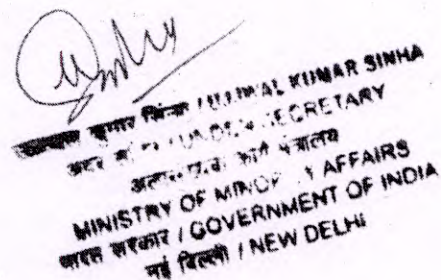 कुमार / UJJWAL KUMAR SINHA
अवर / UNDER SECRETARY
कार्य मंत्रालय
MINISTRY OF MINORITY AFFAIRS
भारत सरकार / GOVERNMENT OF INDIA
नई दिल्ली / NEW DELHI